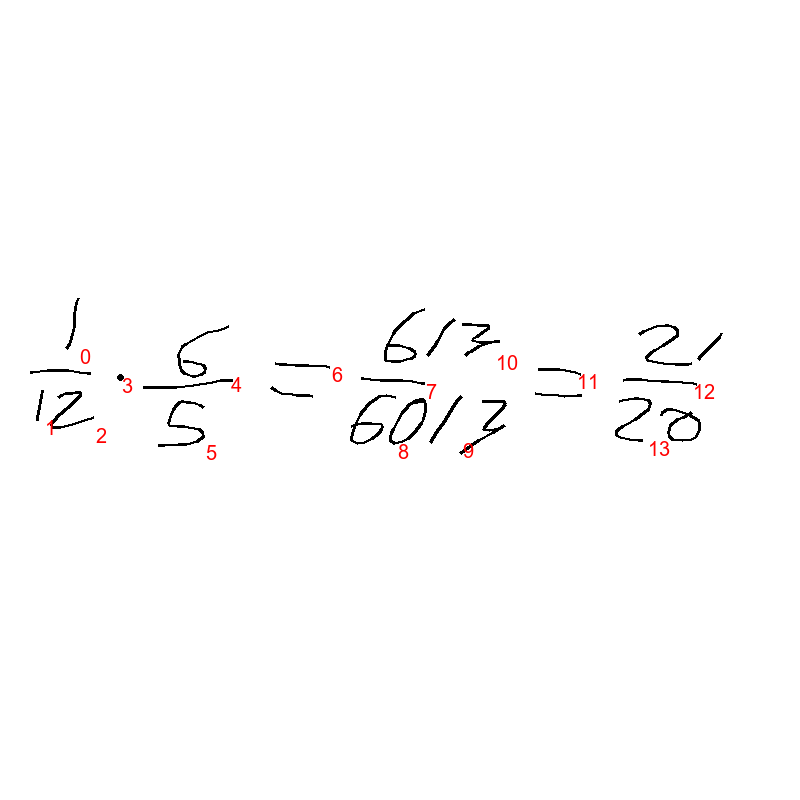 1/12 · 6/5 = 6/3 / 60/3 = 2/ / 20
0 1 2 3 4 5 6 7 8 9 10 11 12 13